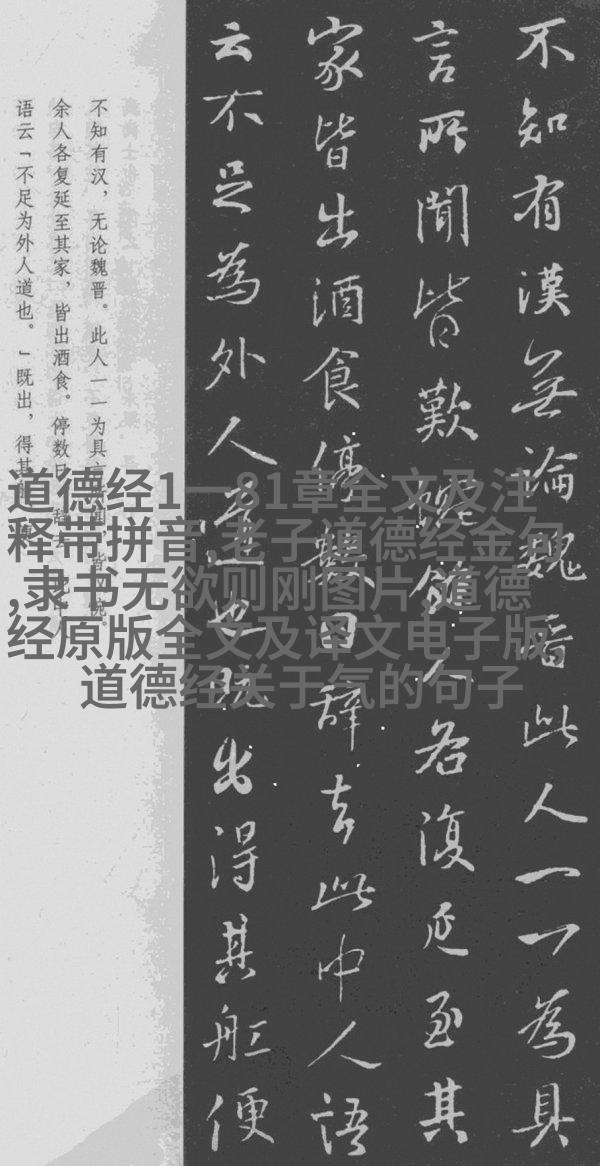 不知有漢無論魏晉此人一一為具
言所聞皆歎惋餘人各復延至其
家皆出酒食停數日辭去此中人語
云不足為外人道也既出得其舡便
不知有汉，无论魏晋。此人一一为具言
余人各复延至其家，皆出酒食。停数日，辞去
语云「不足为外人道也。」既出，得其
道德经1一81章全文及注
释带拼音,老子道德经金句
,隶书无欲则刚图片,道德
经原版全文及译文电子版,
道德经关于气的句子